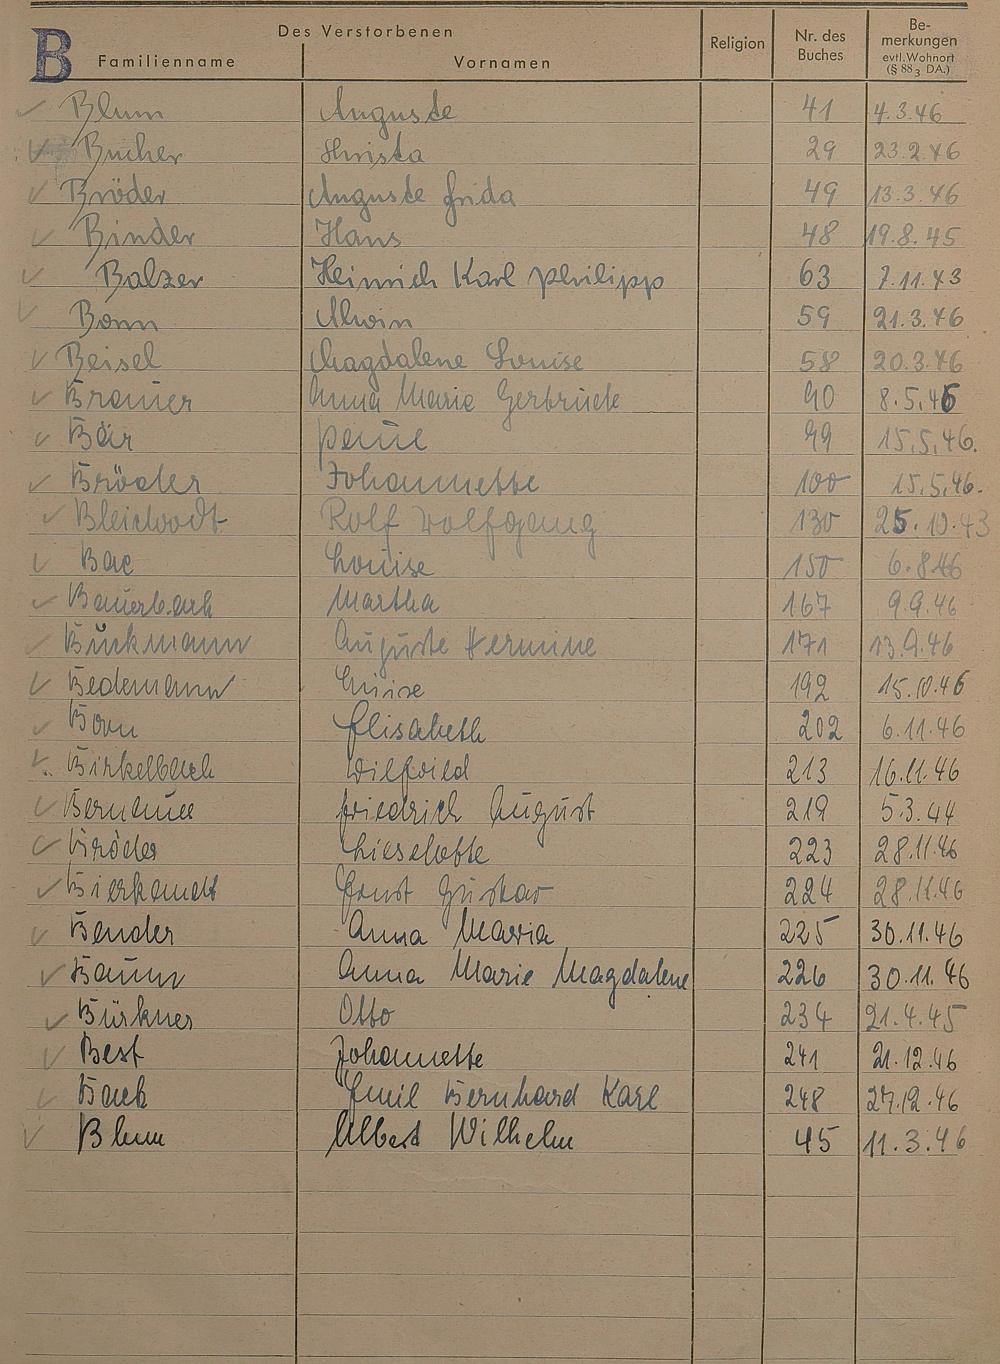 B
Des Verstorbenen
Familienname Vornamen Religion Nr. des Buches Be-merkungen evtl. Wohnort (§ 88 3 DA.)
Blum Auguste 41 4.3.46
Bucher Christa 29 23.2.46
Bröder Auguste Frida 49 13.3.46
Binder Hans 48 19.8.45
Balzer Heinrich Karl Philipp 63 7.11.43
Bonn Alwin 59 21.3.46
Beisel Magdalene Louise 58 20.3.46
Brauer Anna Marie Gertrude 90 8.5.46
Bär Paul 99 15.5.46.
Bröder Johannette 100 15.5.46.
Bleichrodt Rolf Wolfgang 130 25.10.43
Bac Louise 150 6.8.46
Bauerbach Martha 167 9.9.46
Buckmann Auguste Hermine 171 13.9.46
Bedemann Luise 192 15.10.46
Born Elisabeth 202 6.11.46
Birkelbach Wilfried 213 16.11.46
Friedrich August 219 5.3.44
Bröder Lieselotte 223 28.11.46
Bierkandt Ernst Gustav 224 28.11.46
Bender Anna Maria 225 30.11.46
Baum Anna Marie Magdalene 226 30.11.46
Bürkner Otto 234 21.4.45
Best Johannette 241 21.12.46
Back Emil Bernhard Karl 248 27.12.46
Blum Albert Wilhelm 45 11.3.46